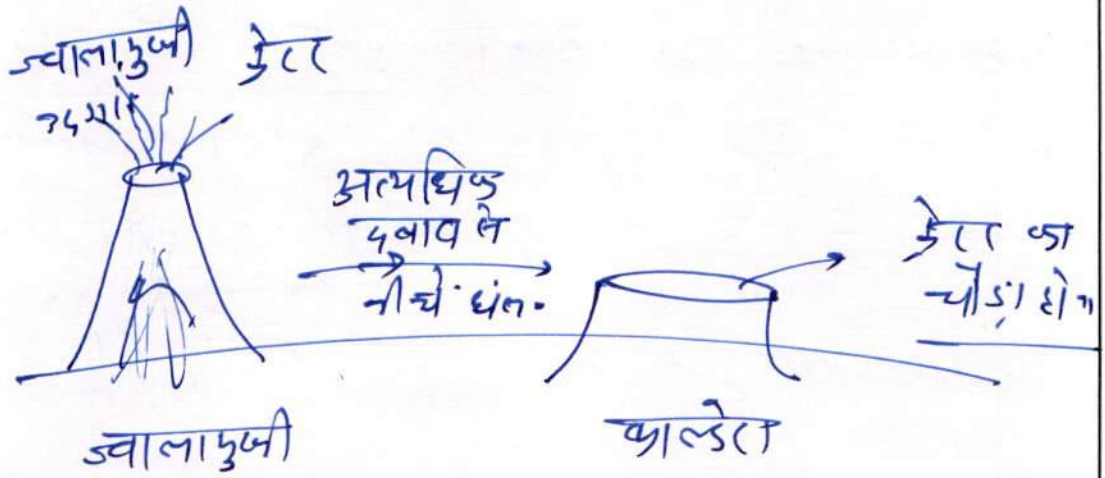 ज्वालामुखी क्रेटर
उदगार
अत्यधिक
दबाव से
नीचे धंस.
क्रेटर का
चौड़ा होना
ज्वालामुखी
काल्डेरा